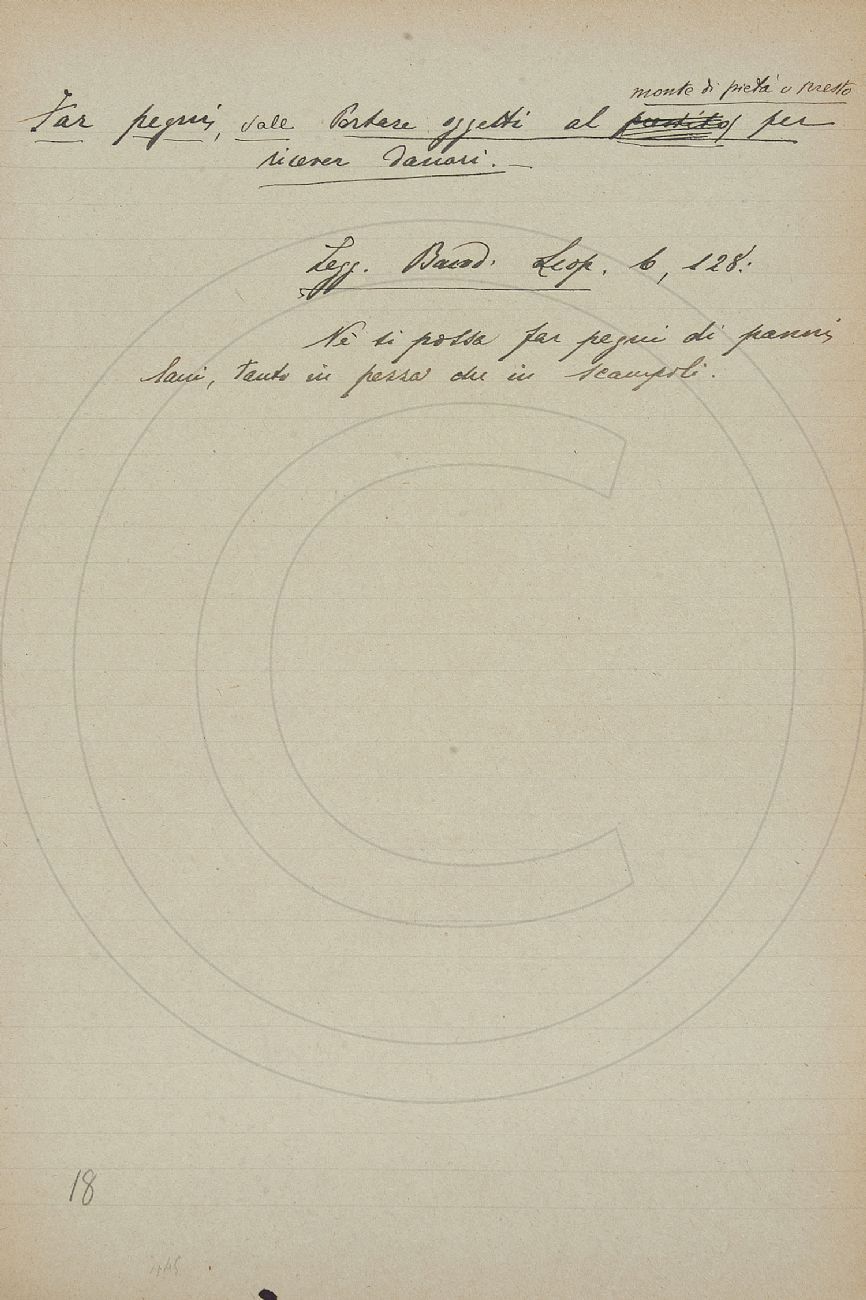 monte di pietà o presto
Far pegni, vale Portare oggetti al per
ricever danari.
Legg. Band. Leop. 6, 128:
Nè si possa far pegni di panni
lani, tanto in pezza che in scampoli.
18